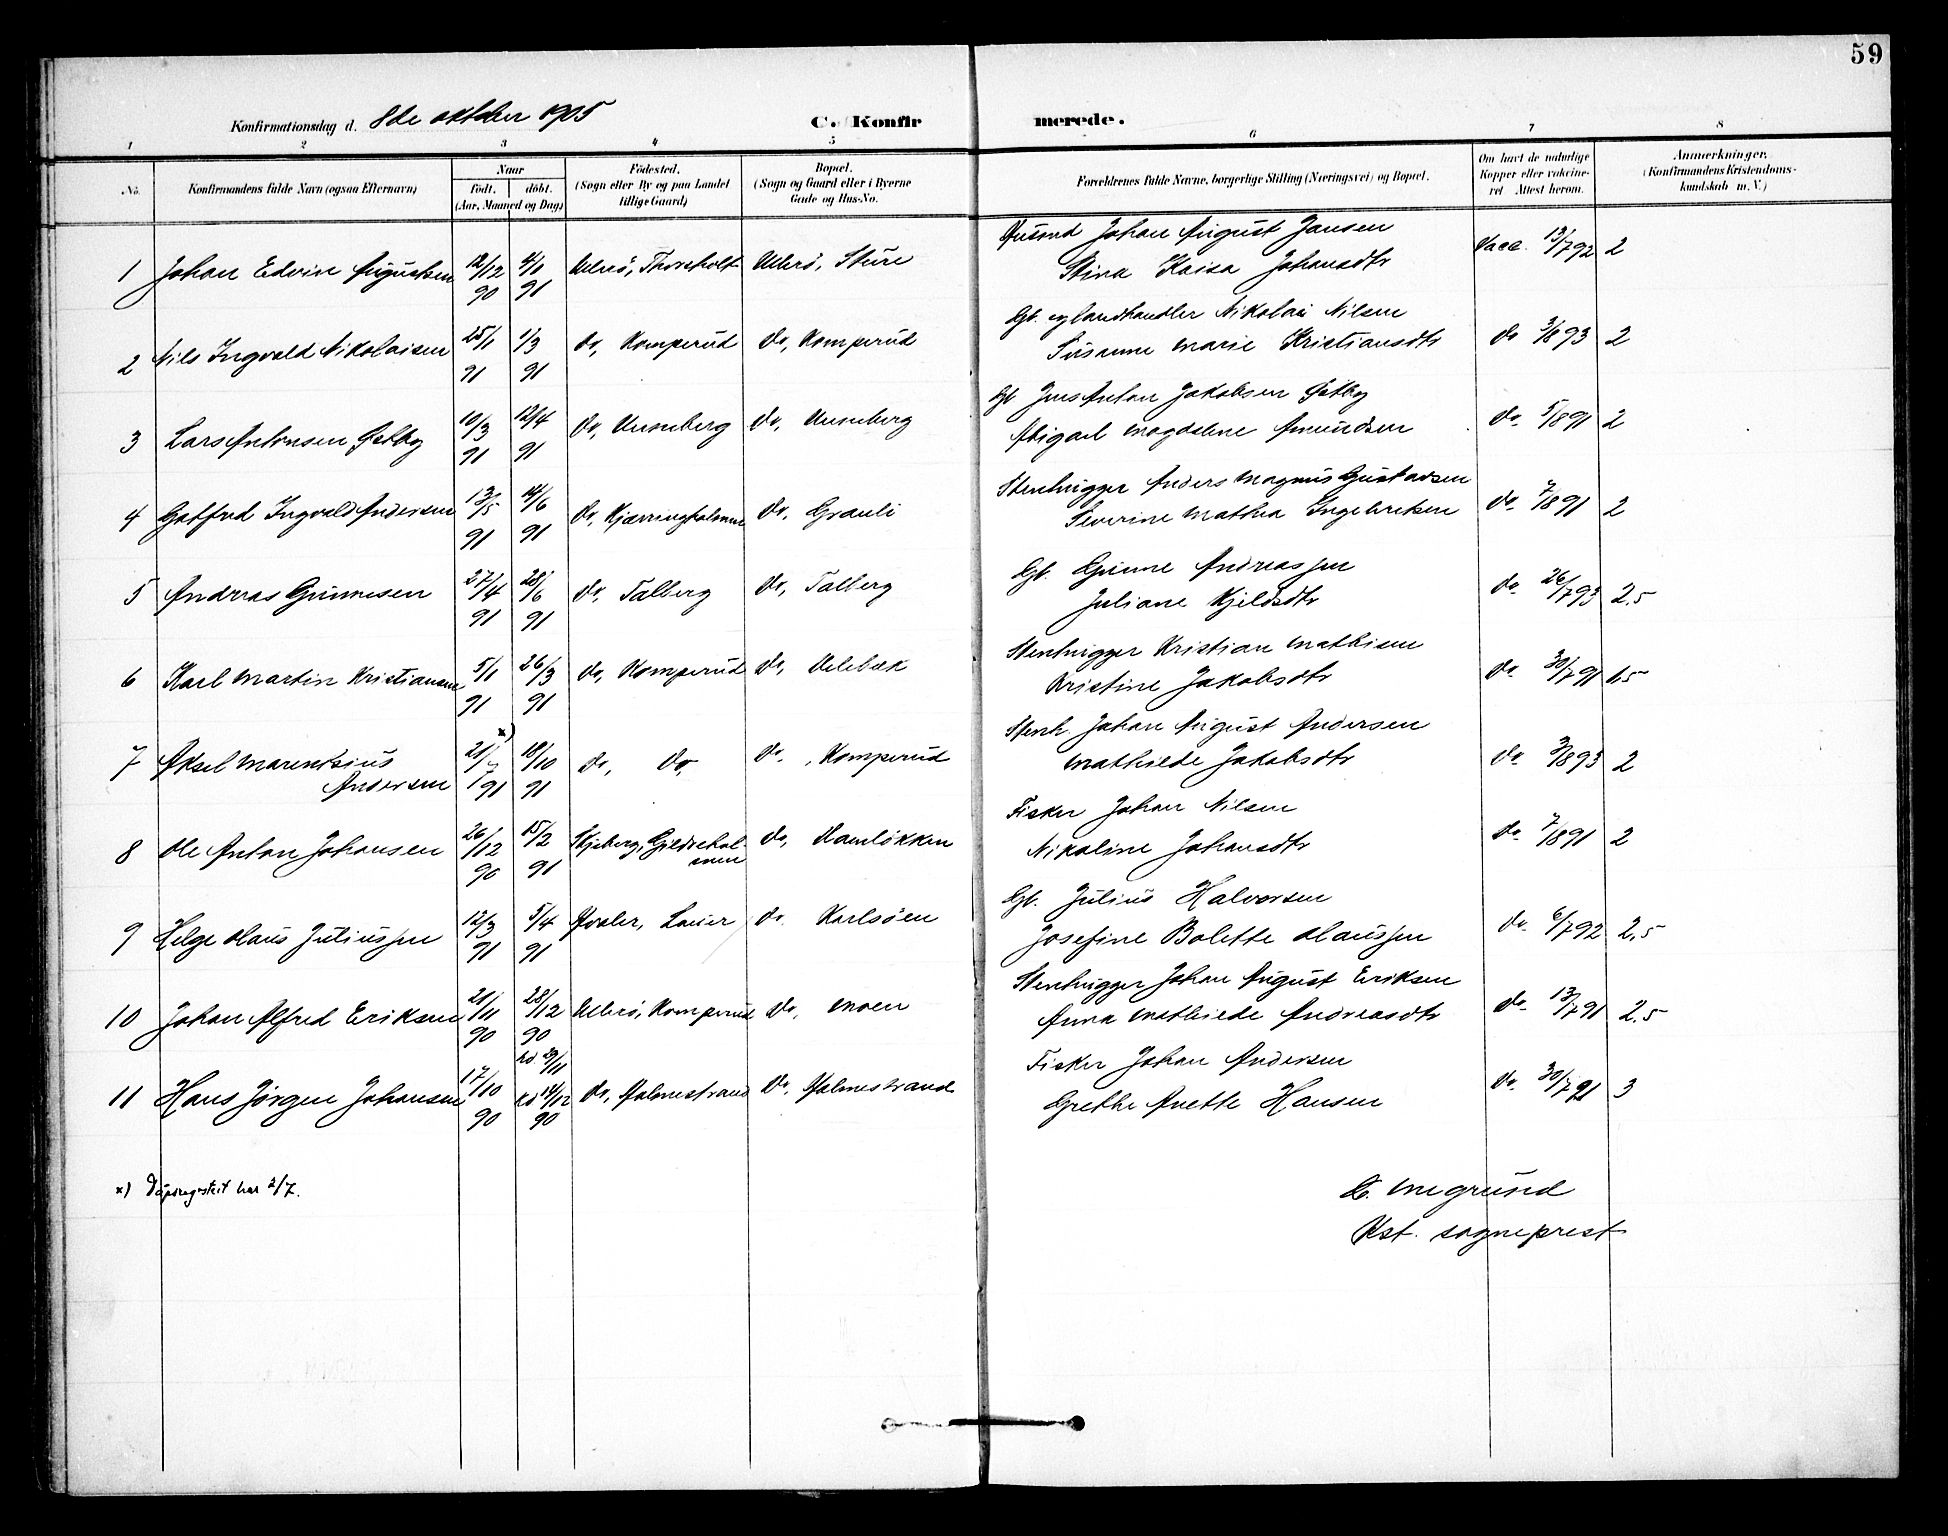 59
Konfirmationsdag d. 8de oktober 1905
C. Konfirmerede.
1 2 3 4 5 6 7 8
No.
Konfirmandens fulde Navn (ogsaa Efternavn)
Naar
født. døbt.
(Aar, Maaned og Dag)
Födested.
(Sogn eller By og paa Landet
tillige Gaard)
Bopæl.
(Sogn og Gaard eller i Byerne
Gade og Hus-No.
Forældrenes fulde Navne, borgerlige Stilling (Næringsvei) og Bopæl.
Om havt de naturlige
Kopper eller vakcine-
ret Attest herom.
Anmærkninger.
(Konfirmandens Kristendoms-
kundskab m. V.)
1 Johan Edvin Augustsen 12/12 90 4/1 91 Thorsholt Husmd Johan August Jansen Vacc. 13/7 92 2
Stina Kaisa Johansdtr
2 Nils Ingvald Nikolaisen 25/1 91 1/3 91 do, Komperud do, Komperud Gbr. og landhandler Nikolai Nilsen do 3/8 93 2
Susanne Marie Kristiansdtr
3 Lars Antonsen Østby 10/3 91 12/4 91 do, Unneberg do, Unneberg Gbr Jens Anton Jakobsen Østby do. 5/8 91 2
Abigael Magdalene Amundsen
4 Gotfred Ingvald Andersen 13/5 91 14/6 91 do, Kjærringholmen do, Grauli Stenhugger Anders Magnus Gustavsen do. 7/8 91 2
Severine Mathea Ingebretsen
5 Andreas Gunnesen 27/4 91 28/6 91 do, Talberg do, Talberg Gbr. Gunne Andreassen do. 26/7 93 2,5
Juliane Kjeldsdtr
6 Karl Martin Kristiansen 5/1 91 26/3 91 do, Komperud do, Stenhugger Kristian Mathisen do. 30/7 91 1,5
Kristine Jakobsdtr
7 Aksel Marentsius x) 21/7 91 18/10 91 do, do, do. , Komperud Stenh. Johan August Andersen do. 3/8 93 2
Andersen Mathilde Jakobsdtr
8 Ole Anton Johansen 26/12 90 15/2 91 Skjeberg, Gjeldrehol- do, Hamløkken Fisker Johan Nilsen do. 7/8 91 2
men Nikoline Johansdtr
9 Helge Olaus Juliussen 12/3 91 5/4 91 Hvaler, Lauer do. Karlsöen Gbr. Julius Halvorsen do. 6/7 92 2,5
Josefine Bolette Olaussen
10 Johan Alfred Eriksen 21/11 90 28/12 90 Komperud do, Moen Stenhugger Johan August Eriksen do. 13/7 91 2,5
Anna Mathilde Andreasdtr
11 Hans Jørgen Johansen 17/10 90 hd 29/11 kd 14/12 90 do, Holmestrand do, Holmestrand Fisker Johan Andersen do. 30/7 91 3
Grethe Anette Hansen
x) Dåpsregistret har 2/7.
Megrund
Kst. sogneprest